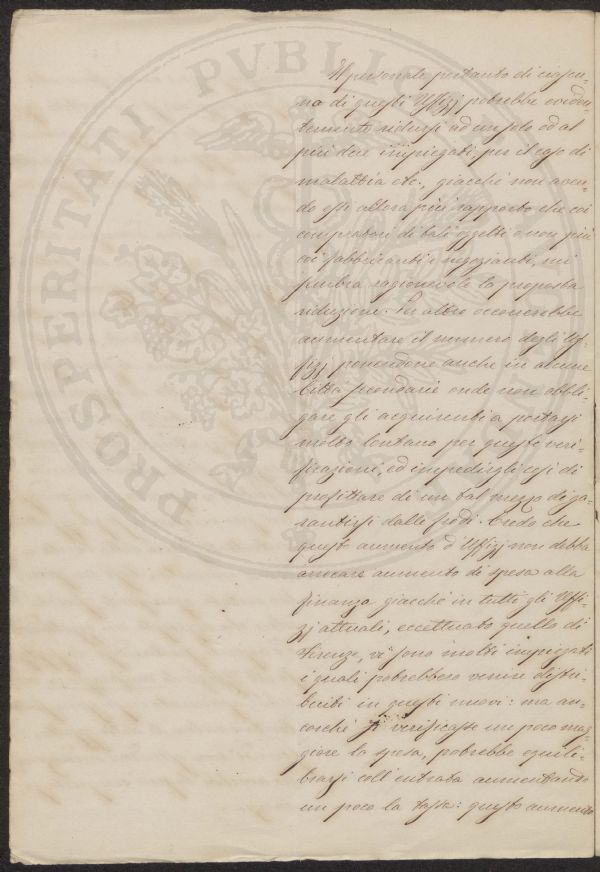 Il personale pertanto di ciascu-
na di questi Uffizj potrebbe eviden-
temente ridursi ad un solo od al
più due impiegati per il caso di
malattia etc., giacchè non aven-
do essi allora più rapporto che coi
compratori di tali oggetti e non più
coi fabbricanti e negozianti, mi
sembra ragionevole la proposta
riduzione. Per altro occorrerebbe
aumentare il numero degli Uf-
fizj ponendone anche in alcune
Città secondarie onde non obbli-
gare gli acquirenti a portarsi
molto lontano per queste veri-
ficazioni, ed impedirgli così di
profittare di un tal mezzo di ga-
rantirsi dalle frodi. Credo che
questo aumento d'Uffizj non debba
arrecare aumento di spesa alla
finanza giacchè in tutti gli Uffi-
zj attuali, eccettuato quello di
Firenze, vi sono molti impiegati
i quali potrebbero venire distri-
buiti in questi nuovi: ma an-
corchè si verificasse un poco mag-
giore la spesa, potrebbe equili-
brarsi coll'entrata aumentando
un poco la tassa: questo aumento
PROSPERITATI PVBLICAE